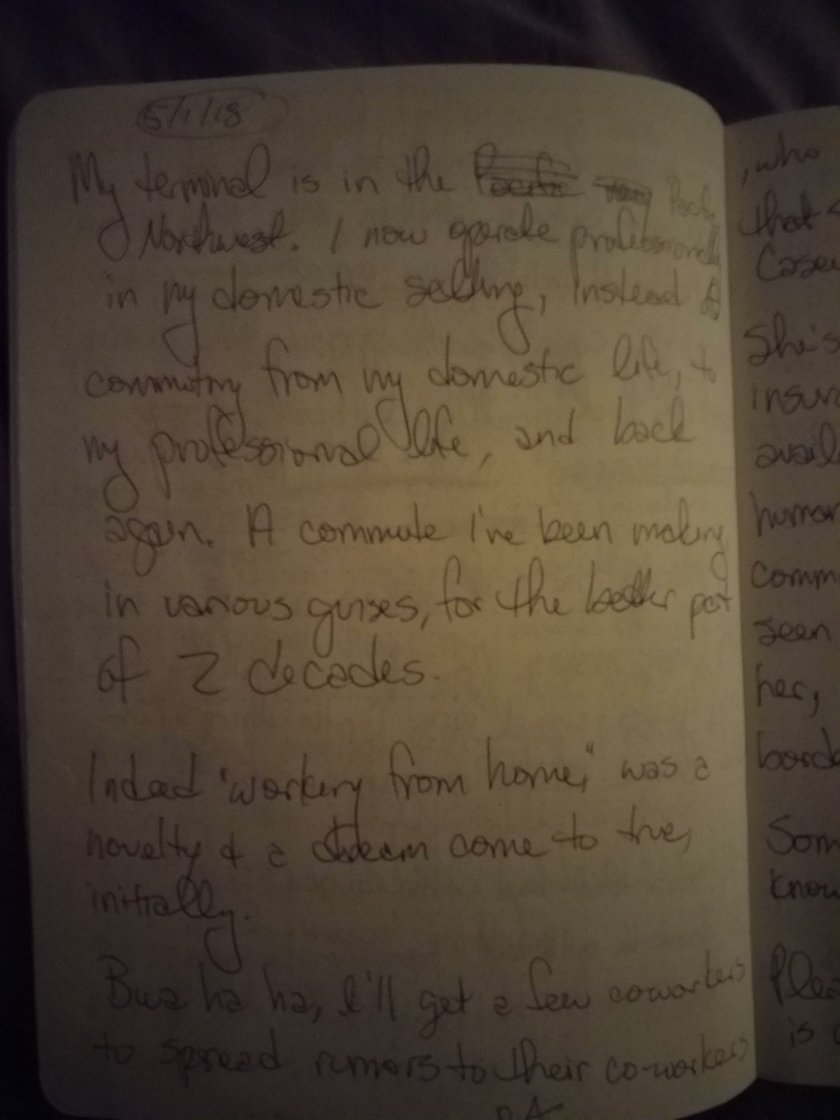 5/1/18
My terminal is in the Pacific
Northwest. I now operate professionally
in my domestic setting, instead of
commuting from my domestic life, to
my professional life, and back
again. A commute I've been making
in various guises, for the better part
of 2 decades.
Indeed "working from home," was a
novelty & a dream come to true,
initially.
Bwa ha ha, I'll get a few coworkers
to spread rumors to their co-workers
, who
that
She's
human
seen
her,